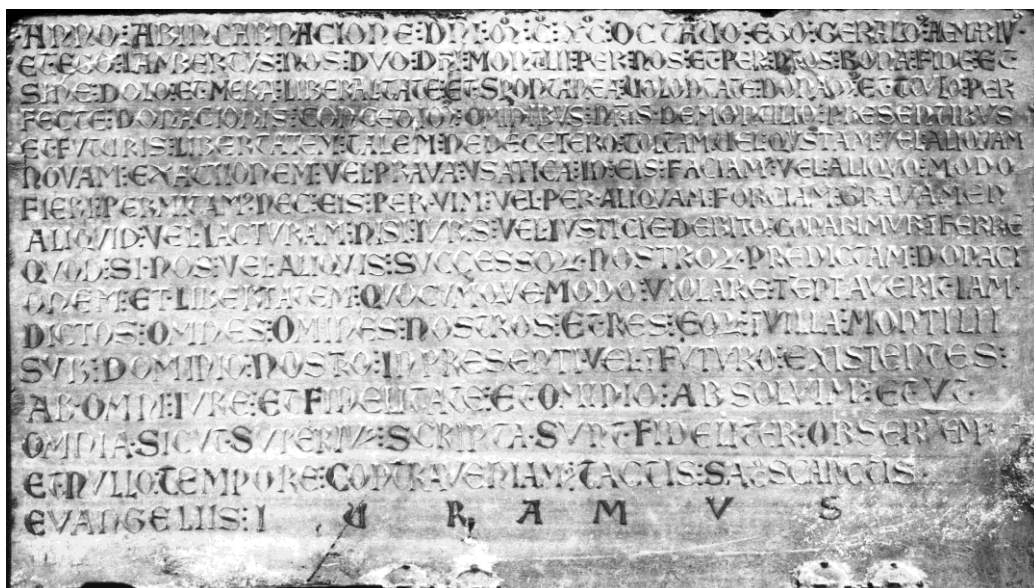 ANNO : AB INCARNACIONE : DNI : M : C : XC : OCTAVO : EGO : GERALD : AEMARIV
ET EGO : LAMBERTVS : NOS : DVO : DNI : MONTILII : PER NOS : ET PER : NROS : BONA : FIDE : ET
SINE : DOLO : ET MERA : LIBERALTATE : ET : SPONTANEA : VOLONTATE : DONAM : ET : TITVLO : PER
FECTE : DONACIONIS : CONCEDIM : OMINIBVS : NRIS : DE MONTILIO : PRESENTIBVS
ET FVTVRIS : LIBERTATEM : TALEM : NE DE CETERO : TOLTAM : VEL : QVSTAM : VEL : ALIQVAM
NOVAM : EXACTIONEM : VEL : PRAVA : VSATICA : IN : EIS : FACIAM : VEL : ALIQVO : MODO
FIERI : PERMITAM : NEC : EIS : PER : VIM : VEL : PER : ALIQVAM : FORCIAM : GRAVAMEN
ALIQVID : VEL : IACTVRAM : NISI : IVRIS : VEL : IVSTICIE : DEBITO : CONABIMVR : IFERRE
QVOD : SI : NOS : VEL : ALIQVIS : SVCCESSOR : NOSTROR : PREDICTAM : DONACI
ONEM : ET : LIBERTATEM : QVOCVMQVE : MODO : VIOLARE : TEPTAVERIT : IAM
DICTOS : OMINES : OMINES : NOSTROS : ET RES : EOR : I VILLA : MONTILII
SVB : DOMINIO : NOSTRO : IN PRESENTI : VEL : I FVTVRO : EXISTENTES :
AB : OMNI : IVRE : ET FIDELITATE : ET OMINIO : ABSOLVIM : ET VT
OMNIA : SICVT : SVPERIVS : SCRIPTA : SVNT : FIDELITER : OBSERVEM
ET NVLLO : TEMPORE : CONTRAVENIAM : TACTIS : SACROSCANCTIS
EVANGELIIS : I U R A M V S